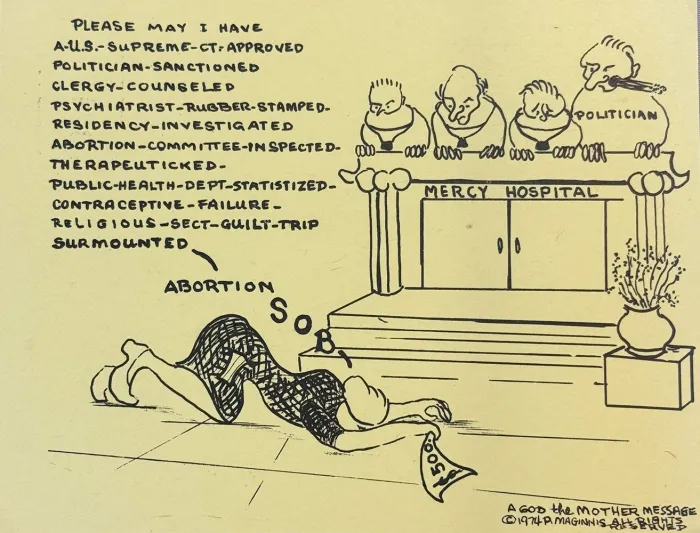 PLEASE MAY I HAVE
A-U.S.-SUPREME-CT-APPROVED
POLITICIAN-SANCTIONED
CLERGY-COUNSELED
PSYCHIATRIST-RUBBER-STAMPED-
RESIDENCY-INVESTIGATED
ABORTION-COMMITTEE-INSPECTED-
THERAPEUTICKED-
PUBLIC-HEALTH-DEPT-STATISTIZED-
CONTRACEPTIVE-FAILURE-
RELIGIOUS-SECT-GUILT-TRIP
SURMOUNTED
ABORTION
SOB
POLITICIAN
MERCY HOSPITAL
$500.
A GOD the MOTHER MESSAGE
©1974 P. MAGINNIS ALL RIGHTS
RESERVED